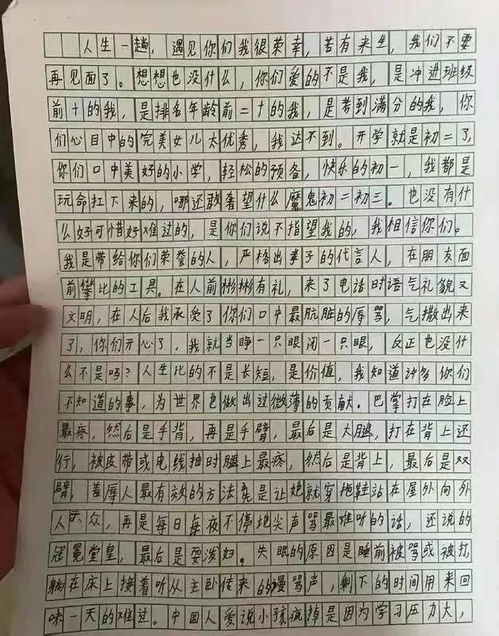 人生一趟，遇见你们我很荣幸，若有来生，我们不要
再见面了。想想也没什么，你们爱的不是我，是冲进班级
前十的我，是排名年龄前二十的我，是考到满分的我，你
们心目中的完美女儿太优秀，我达不到。开学就是初二了，
你们口中美好的小学，轻松的预备，快乐的初一，我都是
玩命扛下来的，哪还敢奢望什么魔鬼初二初三。也没有什
么好可惜好难过的，是你们说不指望我的，我相信你们。
我是带给你们荣誉的人，严格出妻子的代言人，在朋友面
前攀比的工具。在人前彬彬有礼，来了电话时语气礼貌又
文明，在人后我承受了你们口中最肮脏的辱骂，气撒出来
了，你们开心了，我就当睁一只眼闭一只眼，反正也没什
么不是吗？人生比的不是长短，是价值，我知道许多你们
不知道的事，为世界也做出过微薄的贡献。巴掌打在脸上
最疼，然后是手背，再是手臂，最后是大腿，打在背上还
行，被皮带或电线抽时腿上最疼，然后是背上，最后是双
臂，羞辱人最有效的方法莫是让她就穿拖鞋站在屋外向外
人示众，再是每日每夜不停地尖声骂最难听的话，还说的
冠冕堂皇，最后是耍泼妇。失眠的原因是睡前被骂或被打，
躺在床上接着听从主卧传来的谩骂声，剩下的时间用来回
味一天的难过。中国人爱说小孩疯掉是因为学习压力大，